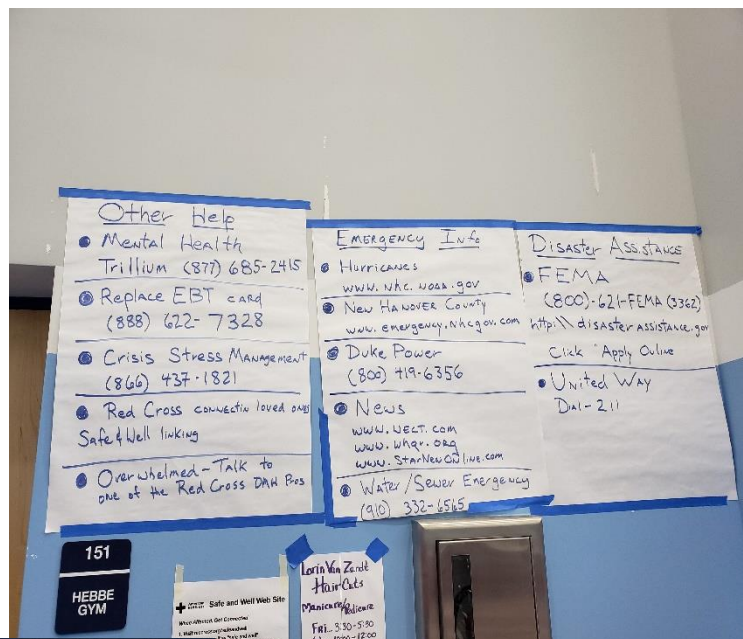 Other Help
Mental Health
Trillium (877) 685-2415
Replace EBT card
(888) 622-7328
Crisis Stress Management
(866) 437-1821
Red Cross connectin loved ones
Safe & Well linking
Overwhelmed - Talk to
one of the Red Cross DMH Pros
Emergency Info
Hurricanes
www.nhc.noaa.gov
New Hanover County
www.emergency.nhcgov.com
Duke Power
(800) 419-6356
News
www.WECT.com
www.whqr.org
www.StarNewsOnline.com
Water/Sewer Emergency
(910) 332-6565
Disaster Assistance
FEMA
(800)-621-FEMA (3362)
http:\\disasterassistance.gov
Click Apply Online
United Way
Dial-211
151
HEBBE
GYM
Safe and Well Web Site
Lorin Van Zandt
Hair Cuts
Manicure/Pedicure
Fri. 3:30-5:30